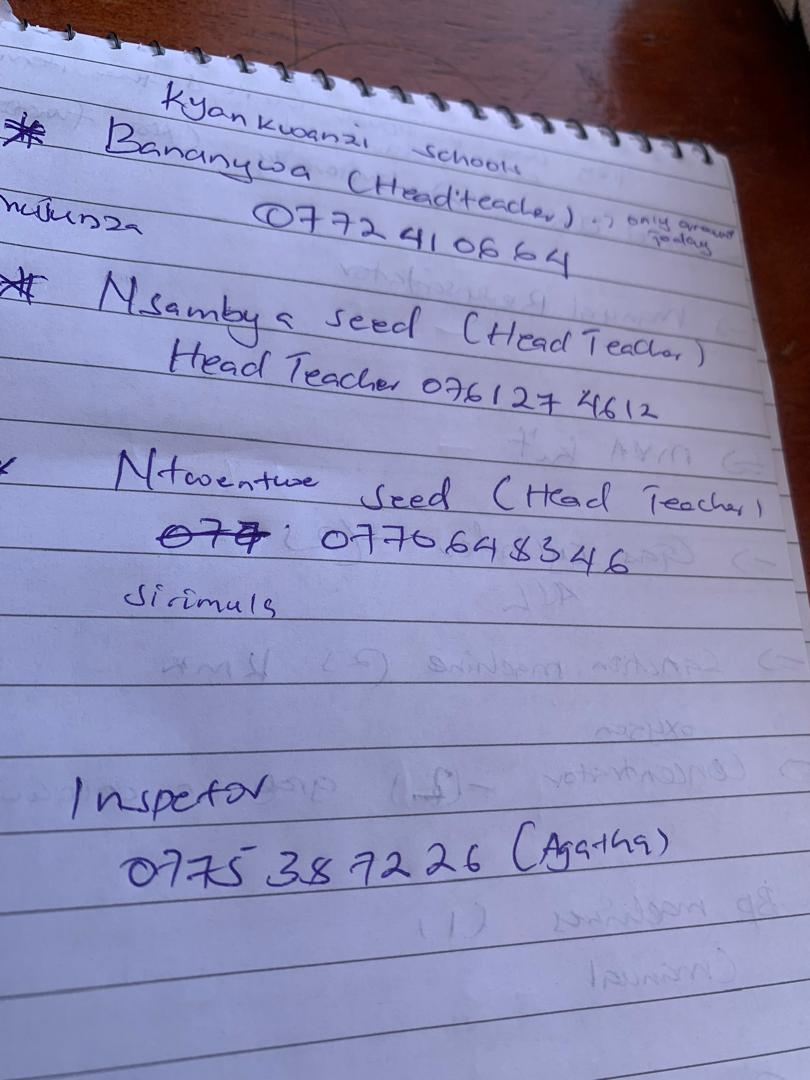 Kyankwanzi schools
* Bananywa (Headteacher) -> only around today
0772 410664
* Nsambya seed (Head Teacher)
Head Teacher 0761274612
Ntwentwe seed (Head Teacher)
0770648346
Inspetor
0775 387226 (Agatha)